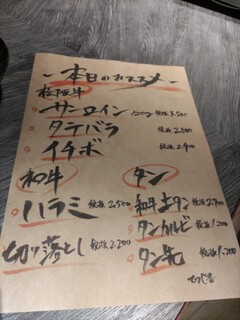 本日のおススメ
松阪牛
サーロイン 120g 税抜 3,500
タテバラ 税抜 2,500
イチボ 税抜 2,900
和牛
ハラミ 税抜 2,500
切り落とし 税抜 2,200
タン
和牛上タン 税抜 2,900
タンカルビ 税抜 1,200
タン先 税抜 1,200